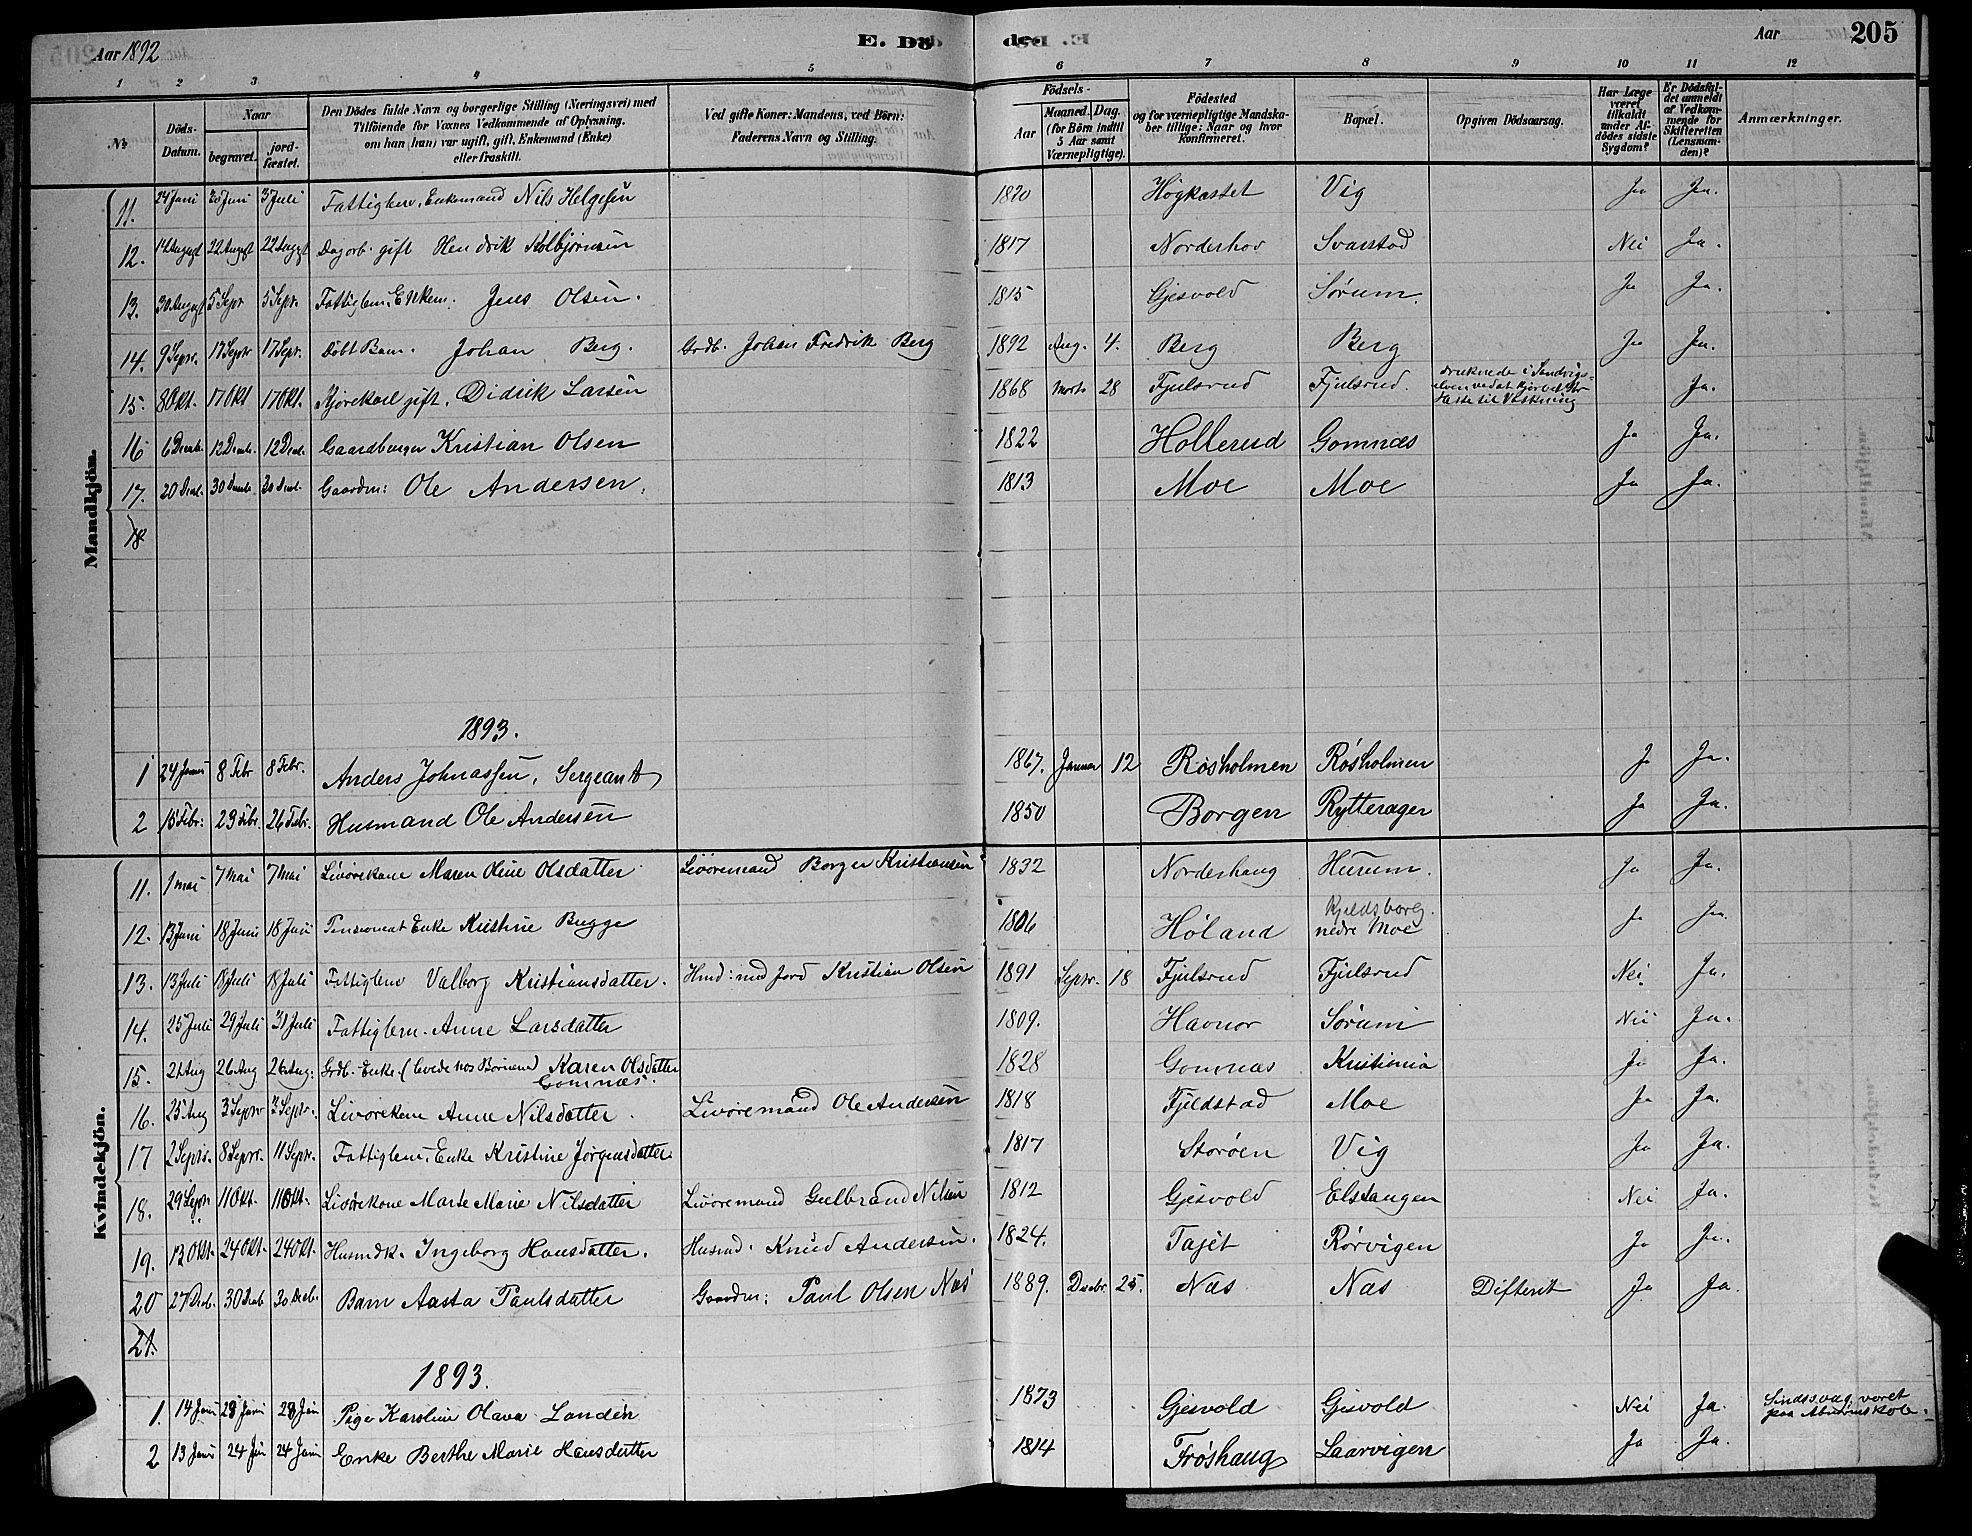 Aar 1892 E. Dö
de. Aar 205
1 2 3 4 5 6 7 8 9 10 11 12
No. Döds-Datum. Naar begravet. jordfæstet. Den Dödes fulde Navn og borgerlige Stilling (Næringsvei) med Tilföiende for Voxnes Vedkommende af Oplysning, om han (hun) var ugift, gift, Enkemand (Enke) eller fraskilt. Ved gifte Koner: Mandens, ved Börn: Faderens Navn og Stilling. Födsels- Aar Maaned. Dag. (for Börn indtil 5 Aar samt Værnepligtige). Födested og for værnepligtige Mandskaber tillige: Naar og hvor Konfirmeret. Bopæl. Opgiven Dödsaarsag. Har Læge været tilkaldt under Afdödes sidste Sygdom? Er Dödsfaldet anmeldt af Vedkommende for Skifteretten (Lensmanden)? Anmærkninger.
Mandkjön.
11. 24 Juni 30 Juni 3 Juli Fattiglem. Enkemand Nils Helgesen 1820 Högkastet Vig Ja Ja.
12. 14 August 22 August 22 August Dagarb. gift Hendrik Kolbjörnsen 1817 Norderhov Svarstad Nei Ja.
13. 30 August 5 Septr 5 Septr. Fattiglem. Enkem. Jens Olsen. 1815 Gjesvold Sörum. Ja Ja.
14. 9 Septr. 17 Septr 17 Septr. Döbt Barn. Johan Berg. Grdb. Johan Fredrik Berg 1892 Aug. 4. Berg Berg Ja Ja.
15. 8 Okt. 17 Okt 17 Okt. Kjörekarl gift. Didrik Larsen 1868 Marts 28 Fjulsrud Fjulsrud. druknede i Sandvigselven ved at kjöre Heste til Vaskning Ja.
16 6 Decmb. 12 Decmb. 12 Decmb. Gaardbruger Kristian Olsen 1822 Hollerud Gomnæs Ja Ja.
17. 20 Decb. 30 Decmb. 30 Decb. Gaardm: Ole Andersen. 1813 Moe Moe Ja Ja.
18
1893.
1 24 Janu 8 Febr 8 Febr. Anders Johnassen, Sergeant 1867. Januar 12 Rösholmen Rösholmen Ja Ja.
2 15 Febr: 23 Febr. 26 Febr. Husmand Ole Andersen 1850 Borgen Rytterager Ja Ja.
Kvindekjön.
11. 1 Mai 7 Mai 7 Mai Livörekone Maren Oline Olsdatter Livöremand Borger Kristiansen 1832 Norderhaug Hurum. Ja Ja.
12. 13 Juni 18 Juni 18 Juni Pensionat Enke Kristine Bugge 1806 Höland Kjeldsborg. nedre Moe Ja Ja
13. 13 Juli 18 Juli 18 Juli Fattiglem Valborg Kristiansdatter. Hmd: med Jord Kristian Olsen 1891 Septr. 18 Fjulsrud Fjulsrud Nei. Ja.
14. 25 Juli 29 Juli 31 Juli Fattiglem. Anne Larsdatter 1809. Havnor Sörum Nei Ja.
15. 21 Aug 26 Aug 26 Aug: Grdb. Enke (levede hos Börnene) Karen Olsdatter Gomnæs. 1828 Gomnæs Kristiania Ja Ja.
16. 25 Aug 3 Septr 3 Septr. Livörekone Anne Nilsdatter. Livöremand Ole Andersen 1818 Fjeldstad Moe Ja Ja.
17 2 Septr. 8 Septr. 11 Septr. Fattiglem. Enke Kristine Jörgensdatter 1817 Storöen Vig Ja Ja.
18. 29 Septr 11 Okt. 11 Okt. Livörekone Marte Marie Nilsdatter Livöremand Gulbrand Nilsen 1812 Gjesvold Elstangen Nei Ja.
19. 13 Okt. 24 Okt. 24 Okt. Husmdk. Ingeborg Hansdatter. Husmd. Knud Andersen. 1824. Tajet Rörvigen Ja Ja.
20 27 Decb. 30 Decb 30 Decb. Barn Aasta Paulsdatter Gaardm: Paul Olsen Næs 1889. Decbr. 25. Næs Næs Difterit Ja Ja.
21.
1893.
1. 14 Janu 28 Janu 28 Jan Pige Karoline Olava Londen 1873 Gjesvold Gjesvold Nei Ja. Sindssvag, været paa
2 13 Janu 24 Jan 24 Janu Enke Berthe Marie Hansdatter 1814 Fröshaug Laarvigen Ja Ja.